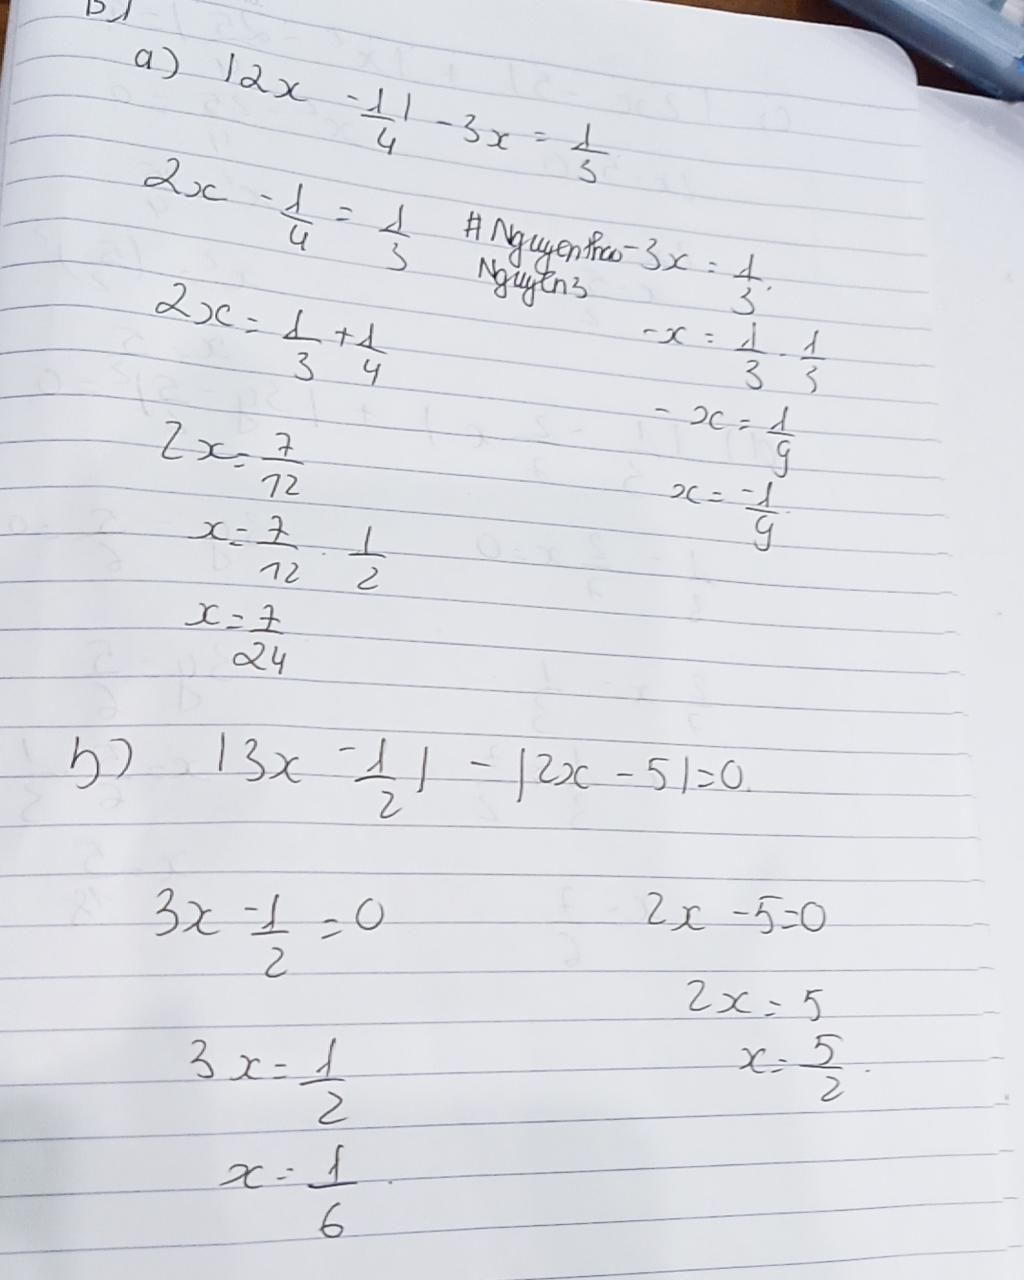 B)
a) |2x - 1/4| - 3x = 1/3
2x - 1/4 = 1/3
#Nguyenthao
Nguyen3
-3x = 1/3.
2x = 1/3 + 1/4
-x = 1/3 . 1/3
- x = 1/9
2x = 7/12
x = -1/9.
x = 7/12 . 1/2
x = 7/24
b) |3x - 1/2| - |2x - 5| = 0.
3x - 1/2 = 0
2x - 5 = 0
2x = 5
3x = 1/2
x = 5/2.
x = 1/6.